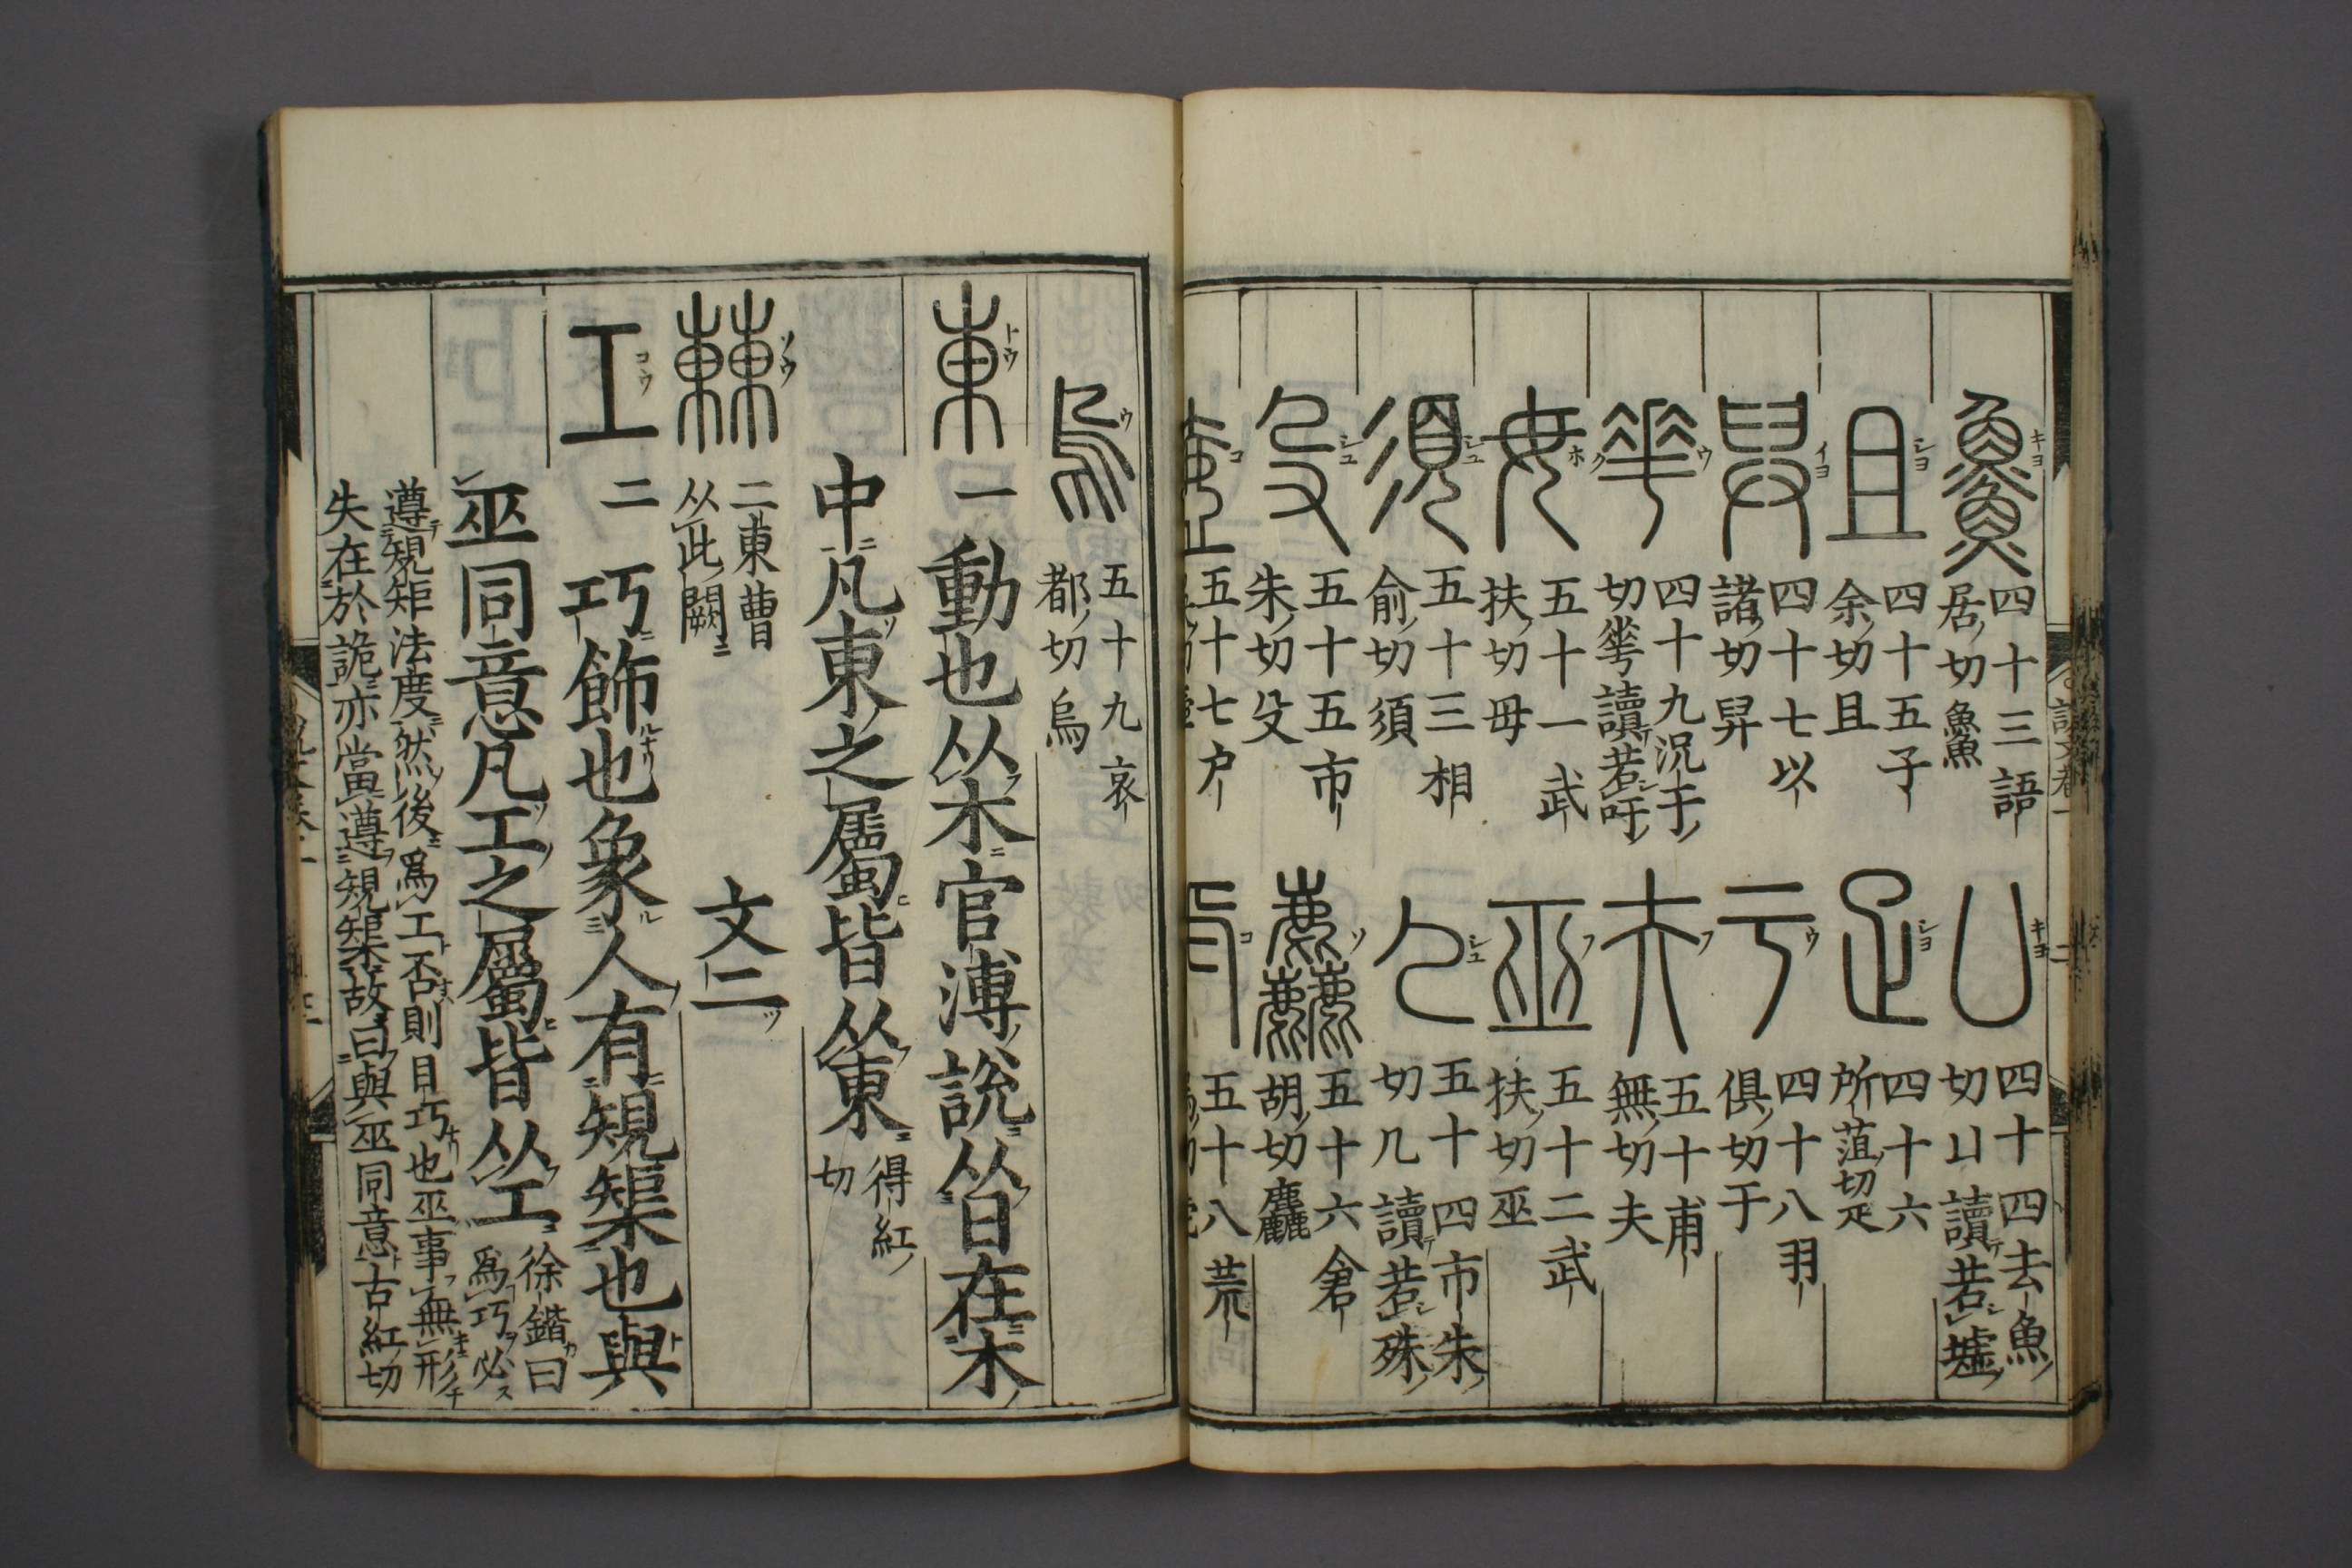 四十三語居切𩺰
四十四去魚切凵讀若墟
四十五子余切且
四十六所菹切疋
四十七以諸切舁
四十八羽俱切于
四十九況于切𠌶讀若吁
五十甫無切夫
五十一武扶切毋
五十二武扶切巫
五十三相俞切須
五十四市朱切几讀若殊
五十五市朱切殳
五十六倉胡切麤
五十七戶
五十八荒
五十九哀都切烏
東 一 動也从木官溥說从日在木
中凡東之屬皆从東 得紅切
𣍘 二東曹从此闕
文二
工 二 巧飾也象人有規榘也與
巫同意凡工之屬皆从工 徐鍇曰爲巧必
遵規矩法度然後爲工否則目巧也巫事無形
失在於詭亦當遵規榘故曰與巫同意古紅切